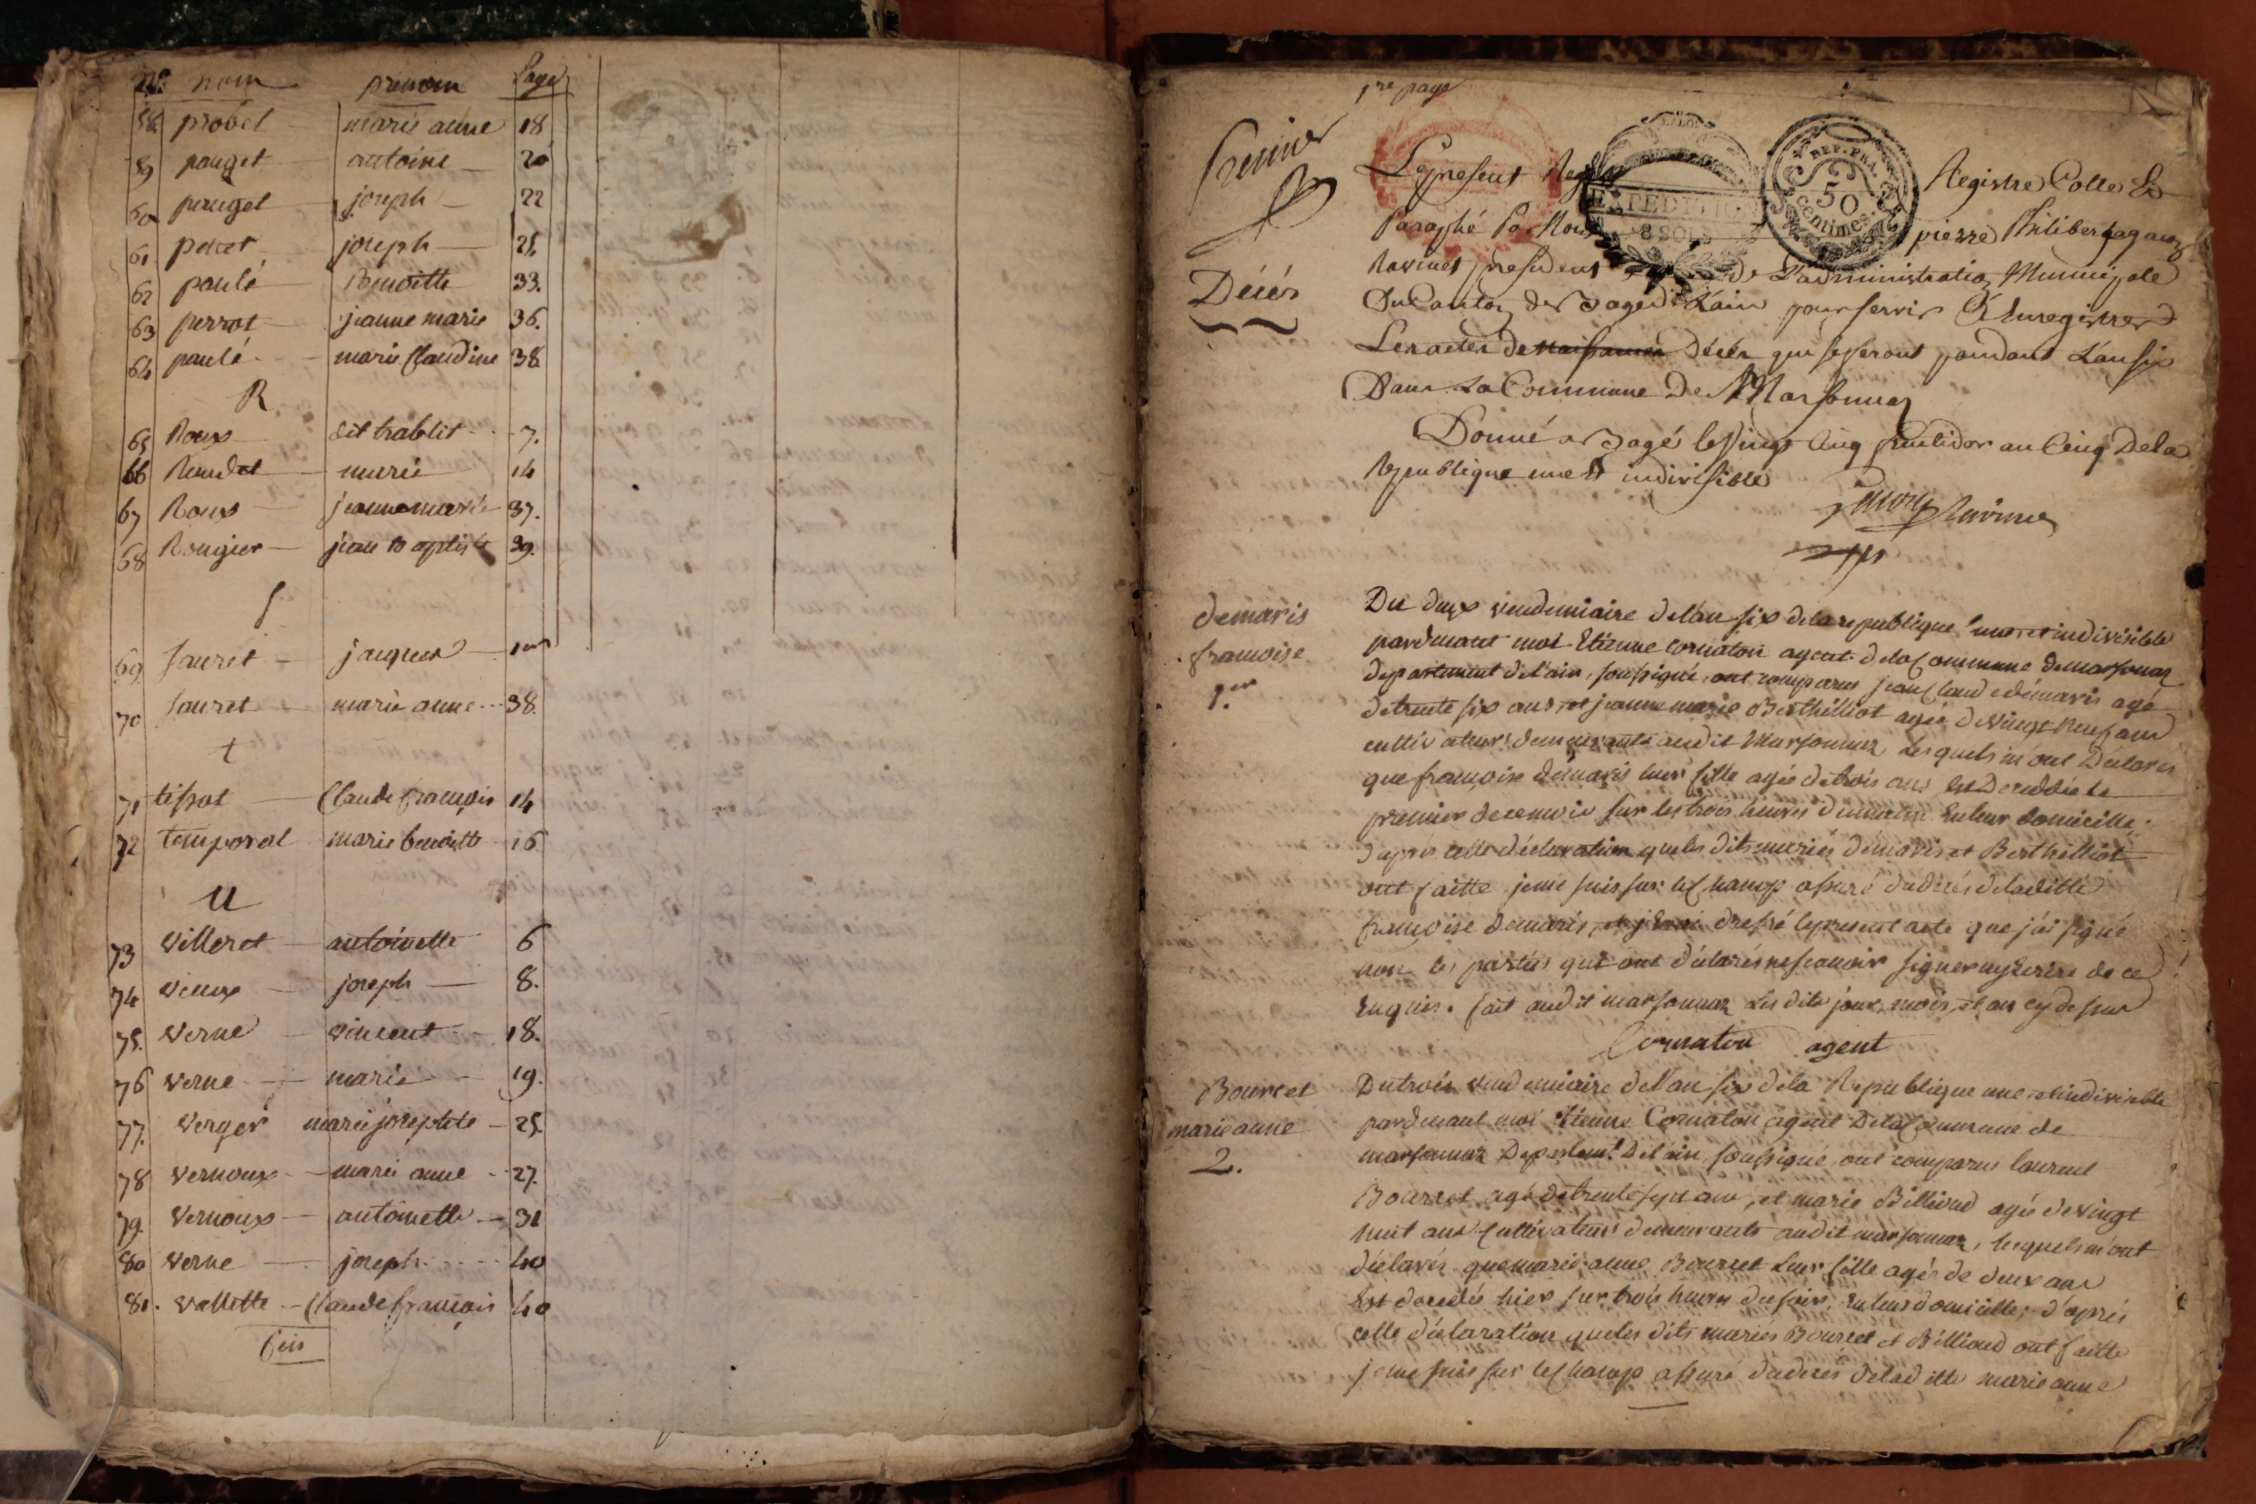 Nos nom prenom Page
58 probet marie anne 18
59 pouget antoine 20
60 pauget joseph 22
61 joseph 25.
62 paulé Benoitte 33.
63 perrot jeanne marie 36.
64 paulé marie Claudine 38
R
65 Roux dit trablit 7.
66 marie 14
67 Roux jeanne marie 37.
68 Rougier jean Baptiste 39.
S
69 Sauret jacques 1er
70 Sauret marie anne 38.
t
71 tissot Claude françois 14
72 temporal marie benoitte 16
U
73 villeret antoinette 6
74 vieux joseph 8.
75. verne vincent 18.
76 verne marie 19.
77. verger marie josephte 25.
78 vernoux marie anne 27.
79. vernoux antoinette 31
80 verne joseph 40
81. vallette Claude françois 40
fin
1re page
Premier
Décés
EXPEDITION
8 SOLS
REP. FRA.
50
centimes
Le present Registre Cotté &
Paraphé Par Nous pierre Philibert
Ravinet president de L'administration Municipale
Du Canton de Bagé D L'ain pour servir A Enregistrer
Les actes de naissances décés qui se feront pendant L'an six
Dans La Commune De Marsonnaz
Donné a Bagé le Vingt Cinq fructidor an Cinq De la
Republique une & indivisible
Ravinet
demaris
françoise
1er
Du deux vendemiaire de l'an six de la republique une et indivisible
pardevant moi Etienne cornaton agent de la Commune de marsonnaz
departement de l'ain, soussigné, ont comparus jean Claude demaris agé
de trente six ans et jeanne marie Berthilliot agée de vingt neuf ans
cultivateurs demeurants audit Marsonnaz Lesquels m'ont Déclarés
que françoise demaris leur fille agée de trois ans Est Decedée le
premier de ce mois sur les trois heures du matin En leur domicille;
d'après cette déclaration que les dits mariés demaris et Berthilliot
ont faitte je me suis sur le Champ assuré du décés de laditte
françoise demaris, et j'en ai dressé le present acte que j'ai signé
non les parties qui ont déclarés ne scavoir signer ny Ecrire de ce
Enquis. fait audit marsonnaz Les dits jour, mois, et an cy dessus
Cornaton agent
Bourcet
marie anne
2.
Du trois vendemiaire de l'an six de la Republique une et indivisible
pardevant moi Etienne Cornaton agent De la Commune de
marsonnaz Departemt. De l'ain, soussigné, ont comparus laurent
Bourcet agé de trente sept ans, et marie Billioud agée de vingt
huit ans Cultivateurs demeurants audit marsonnaz, lesquels m'ont
déclarés que marie anne Bourcet Leur fille agée de deux ans
Est decedée hier sur trois heures du soir, En leur domicille; d'après
cette déclaration que les dits mariés Bourcet et Billioud ont faitte
je me suis sur le Champ assuré du décés de laditte marie anne